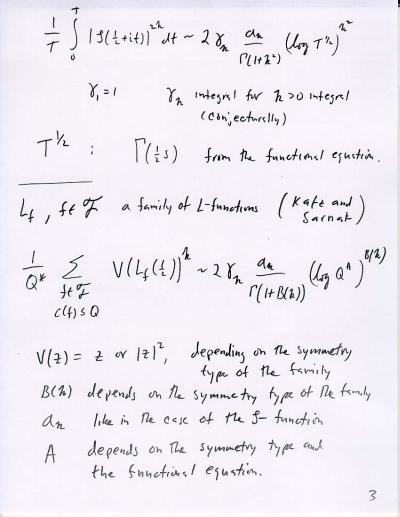 1/T ∫₀ᵀ |ζ(½+it)|²ᵏ dt ~ 2 γₖ aₖ/Γ(1+k²) (log T^{1/2})^{k²}
γ₁ = 1 γₖ integral for k > 0 integral
(conjecturally)
T^{1/2} : Γ(½s) from the functional equation.
L_f , f ∈ ℱ a family of L-functions (Katz and Sarnak)
1/Q* Σ_{f∈ℱ, c(f)≤Q} V(L_f(½))ᵏ ~ 2 γₖ aₖ/Γ(1+B(k)) (log Q^A)^{B(k)}
V(z) = z or |z|², depending on the symmetry
type of the family
B(k) depends on the symmetry type of the family
aₖ like in the case of the ζ-function
A depends on the symmetry type and
the functional equation.
3